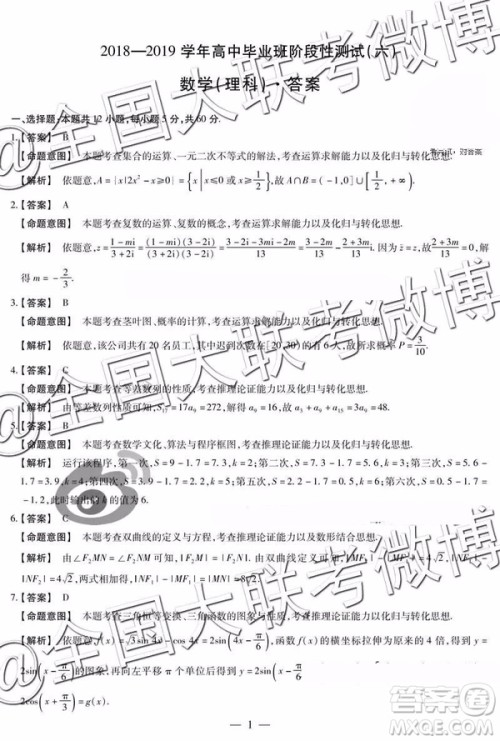 2018—2019 学年高中毕业班阶段性测试(六)
数学(理科)·答案
一、选择题:本题共12小题,每小题5分,共60分.
1.【答案】 B
【命题意图】 本题考查集合的运算、一元二次不等式的解法,考查运算求解能力以及化归与转化思想.
【解析】 依题意,A={x|2x²-x≥0}={x|x≤0或x≥1/2},故A∩B=(-1,0]∪[1/2,+∞).
2.【答案】 A
【命题意图】 本题考查复数的运算、复数的概念,考查运算求解能力以及化归与转化思想.
【解析】 依题意,z=(1-mi)/(3+2i)=(1-mi)(3-2i)/(3+2i)(3-2i)=(3-2i-3mi-2m)/13=(3-2m)/13-(2+3m)i/13.因为z̄=z,故2+3m=0,解
得m=-2/3.
3.【答案】
【命题意图】 本题考查茎叶图、概率的计算,考查运算求解能力以及化归与转化思想.
【解析】 依题意,该公司共有20名员工,其中迟到次数在[20,30)的有6人,故所求概率P=3/10.
4.【答案】 C
【命题意图】 本题考查等差数列的性质,考查推理论证能力以及化归与转化思想.
【解析】 由等差数列性质,S₁₇=17a₉=272,解得a₉=16,故a₃+a₉+a₁₅=3a₉=48.
5.【答案】
【命题意图】 本题考查数学文化、算法与程序框图,考查推理论证能力以及化归与转化思想.
【解析】 运行该程序,第一次,S=9-1.7=7.3,k=2;第二次,S=7.3-1.7=5.6,k=3;第三次,S=5.6-
1.7=3.9,k=4;第四次,S=3.9-1.7=2.2,k=5;第五次,S=2.2-1.7=0.5,k=6;第六次,S=0.5-1.7=
-1.2,此时输出的k的值为6.
6.【答案】 C
【命题意图】 本题考查双曲线的定义与方程,考查推理论证能力以及数形结合思想.
【解析】 由∠F₂MN=∠F₂NM可知,|F₂M|=|F₂N|.由双曲线定义可知,|MF₂|-|MF₁|=4√2,|NF₁|-
|NF₂|=4√2,两式相加得,|NF₁|-|MF₁|=|MN|=8√2.
7.【答案】 D
【命题意图】 本题考查三角恒等变换、三角函数的图象与性质,考查推理论证能力以及化归与转化思想.
【解析】 依题意,f(x)=√3sin4x-cos4x=2sin(4x-π/6),函数f(x)的横坐标拉伸为原来的4倍,得到y=
2sin(x-π/6)的图象,再向左平移π个单位后得到y=2sin(x
2cos(x+π/3)=g(x).
— 1 —
全国大联考微博
全国大联考微博
全国大联考微博